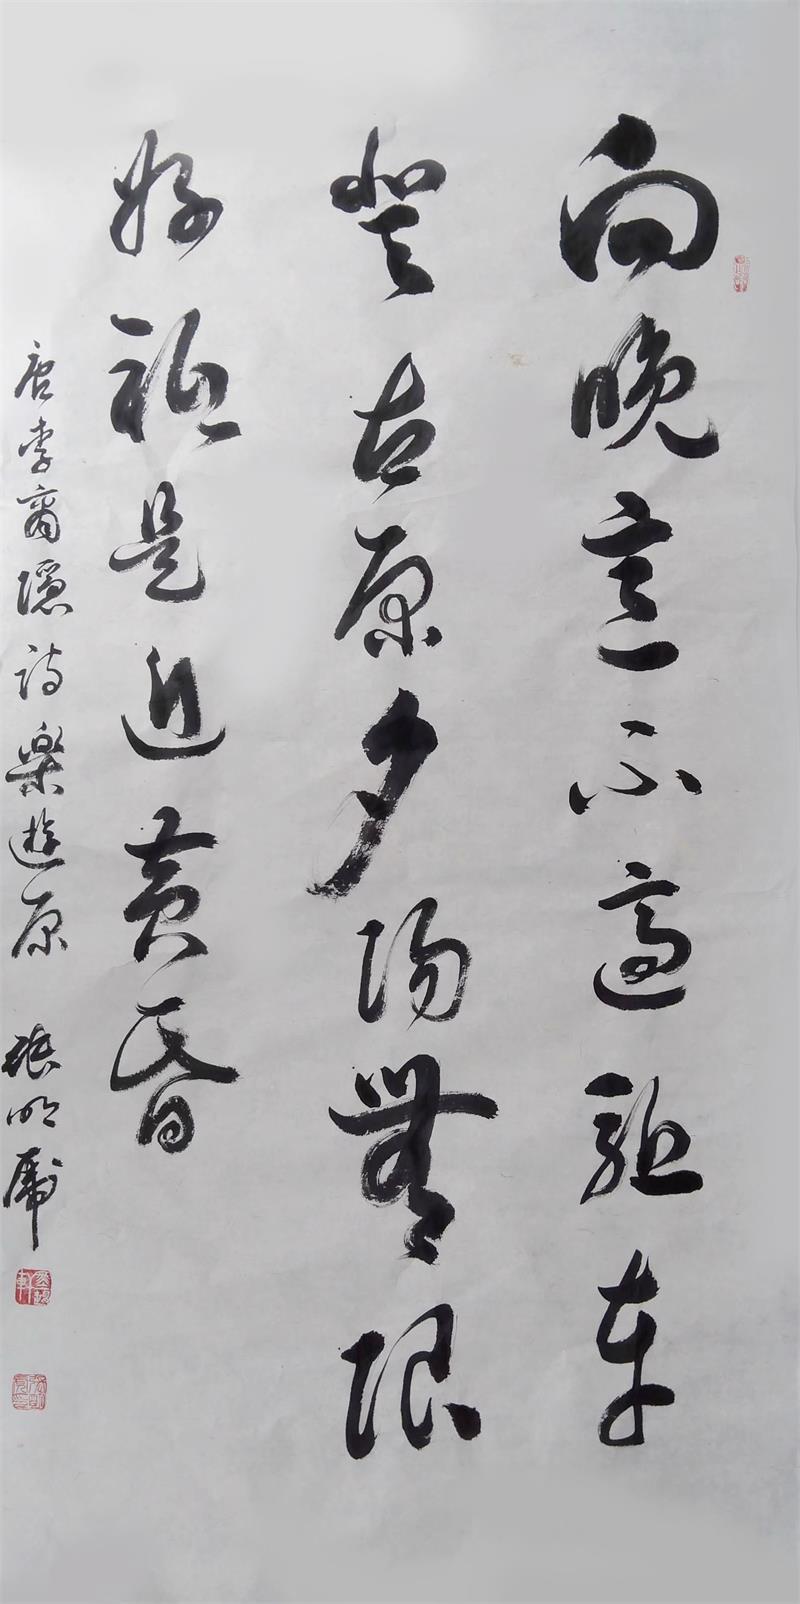 向晚意不適驅車
登古原夕陽無限
好祇是近黃昏
唐李商隱詩樂遊原 張明虎